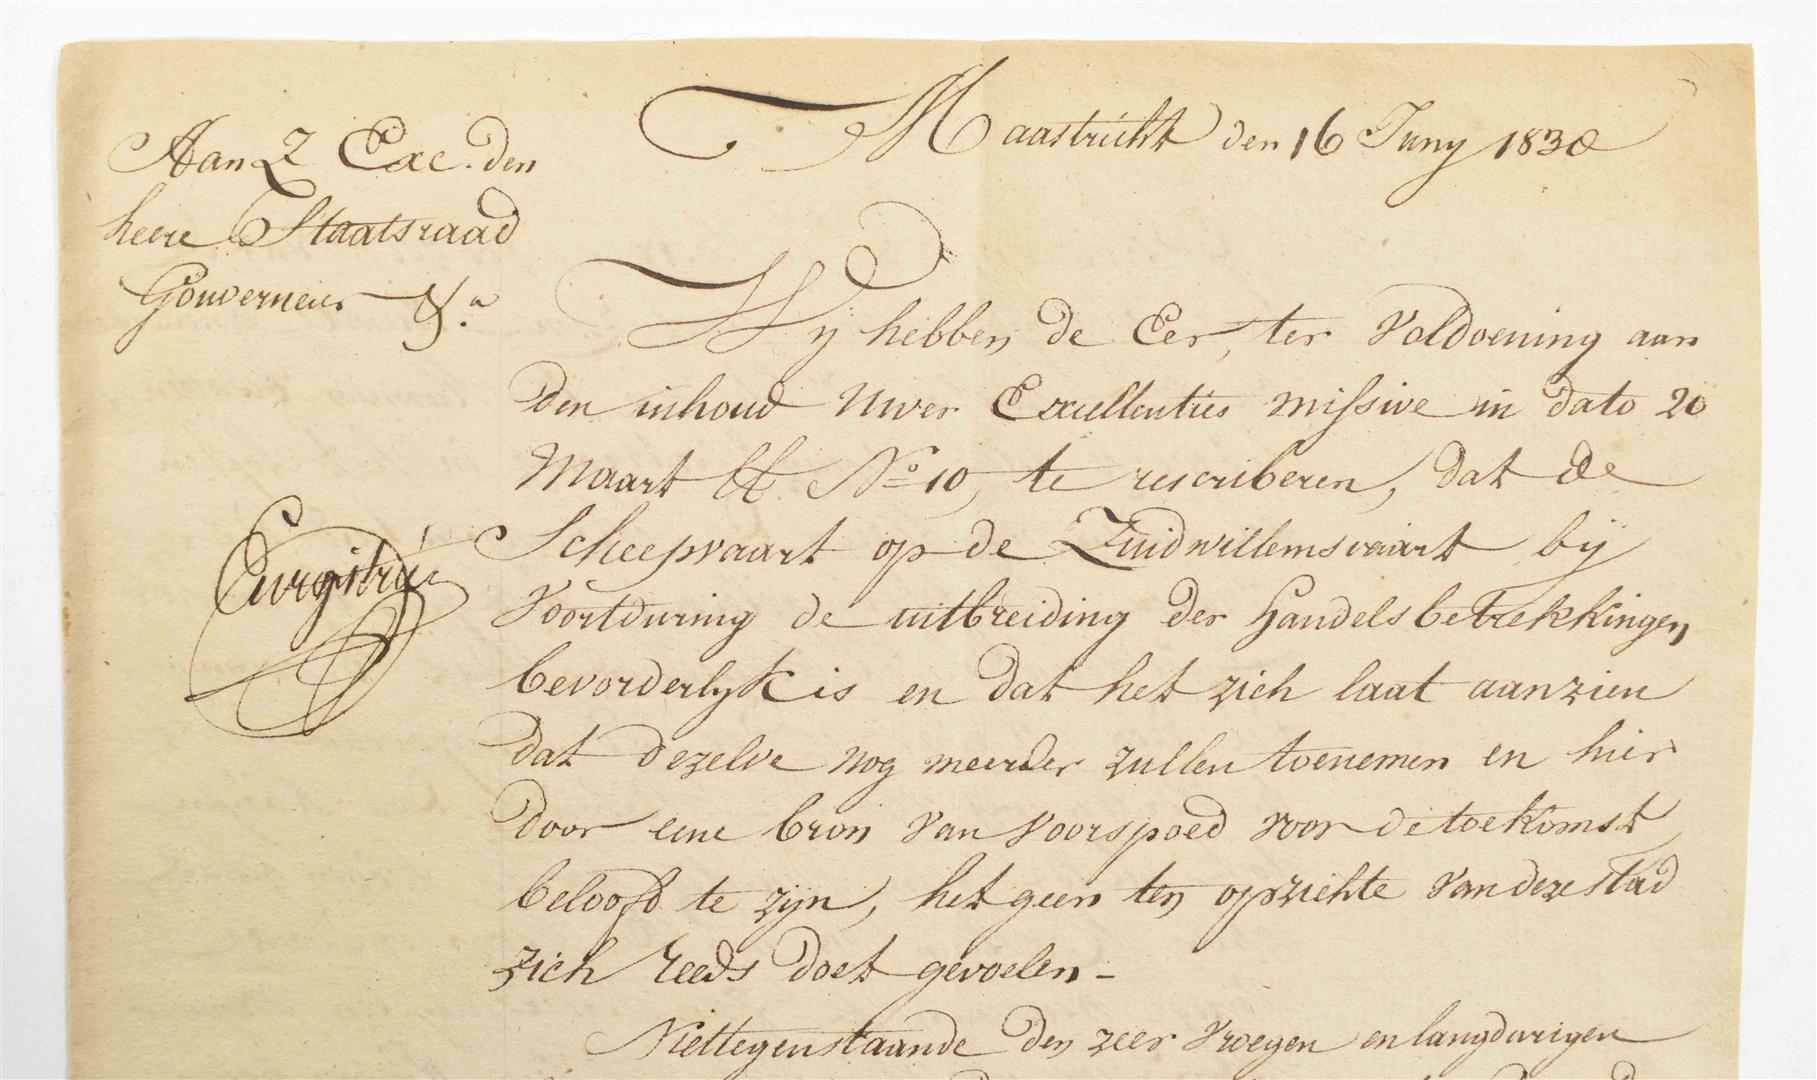 Maastricht den 16 Juny 1830
Aan Z Exc. den
heere Staatsraad
Gouverneur &a
Wij hebben de Eer, ter voldoening aan
den inhoud Uwer Excellenties missive in dato 20
Maart ll. No 10, te rescriberen, dat de
Scheepvaart op de Zuidwillemsvaart bij
voortduring de uitbreiding der Handelsbetrekkingen
bevorderlijk is en dat het zich laat aanzien
dat dezelve nog meerder zullen toenemen en hier
door eene bron van voorspoed voor de toekomst
belooft te zijn, het geen ten opzichte van deze stad
zich reeds doet gevoelen -
Niettegenstaande den zeer vroegen en langdurigen